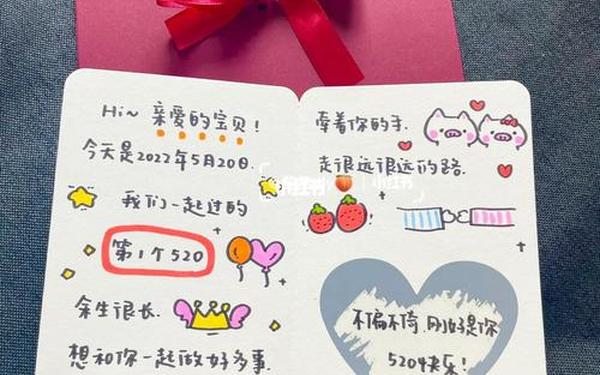 Hi~ 亲爱的宝贝!
今天是2022年5月20日.
我们一起过的
第1个520
余生很长.
想和你一起做好多事.
牵着你的手.
走很远很远的路.
不偏不倚.刚好是你
520快乐!
小红书